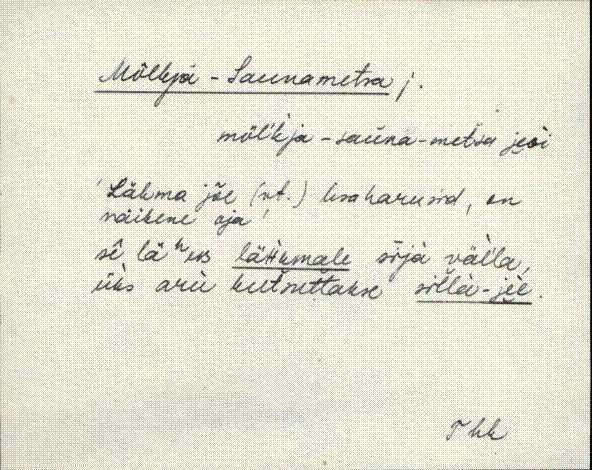 Mölkja - Saunametsa j.
möl'kja - sauna - metsa jeoi
'Lähma jõe (vt.) lisaharusid, on
väikene oja'
sē läheos lähkmale sõjà väl'la,
üks arù kutsuttakse sillà-jèe.
Thk